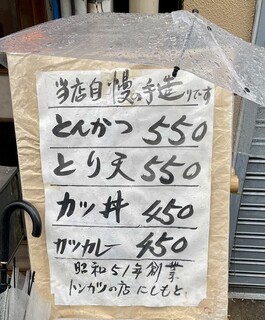 当店自慢の手造りでーす
とんかつ 550
とり天 550
カツ丼 450
カツカレー 450
昭和51年創業
トンカツの店 にしもと